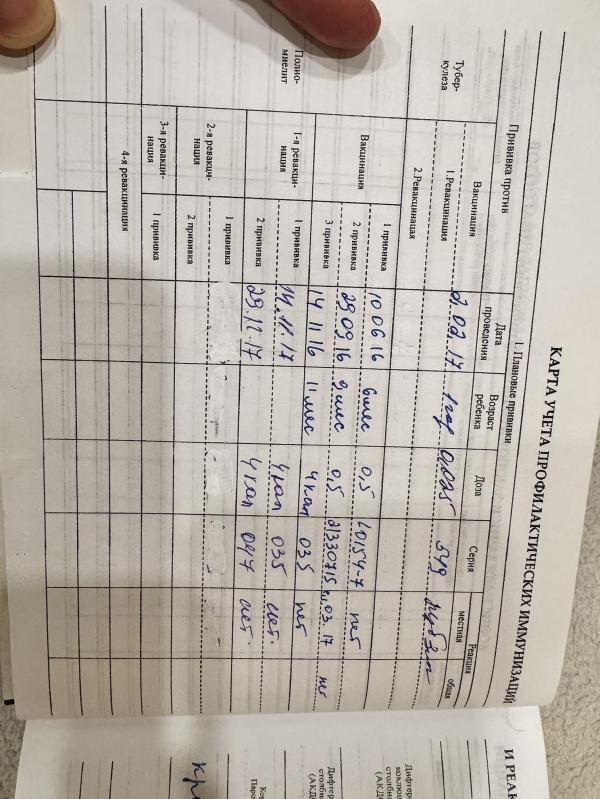 КАРТА УЧЕТА ПРОФИЛАКТИЧЕСКИХ ИММУНИЗАЦИЙ
1. Плановые прививки
Прививка против
Дата проведения
Возраст ребенка
Доза
Серия
Реакция
местная
общая
Тубер-
кулеза
Вакцинация
1.Ревакцинация 21.02.17 1 год 0,025 549
2.Ревакцинация
Полио-
миелит
Вакцинация
1 прививка 10 06 16 6 мес 0,5 L0154-7 нет
2 прививка 29 09 16 9 мес 0,5 нет
3 прививка 14 11 16 11 мес 4 кап 035 нет
1-я ревакци-
нация
1 прививка 14.11.17 4 кап 035 нет.
2 прививка 29.12.17 4 кап 047 нет.
2-я ревакци-
нация
1 прививка
2 прививка
3-я ревакци-
нация
1 прививка
4-я ревакцинация
И РЕАК
Дифтер
коклюш
столбн
(АКДС
Дифтер
столбн
(АКДС
Кор
Паро